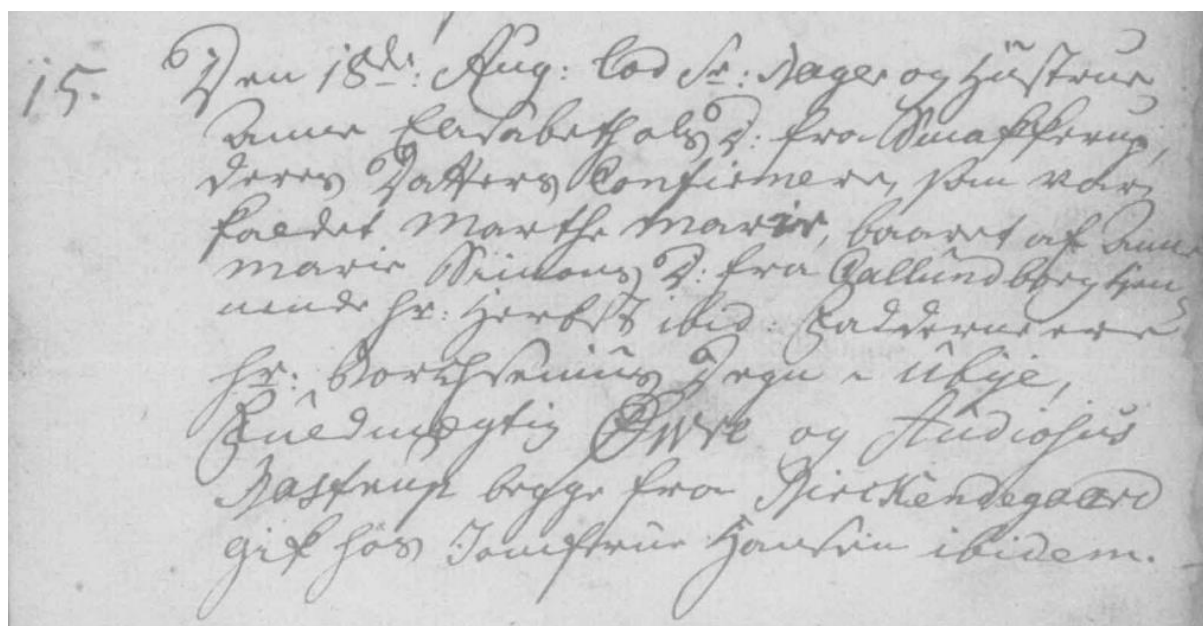 15. Den 18de: Aug: lod Sr: Bager og Hustrue
Anne Elisabeth Ols D: fra Snafferup,
deres Datters Confirmere, som var
kaldet Marthe Marie, baaret af Anne
Marie Simons D: fra Callundborg tjen-
nende hr: Herbst ibid: Fadderne ere
hr: Borchsenius Degn i Ubye,
Fuldmægtig og Studiosus
Bastrup begge fra Birckendegaard
gik hos Jomfrue Hansen ibidem.